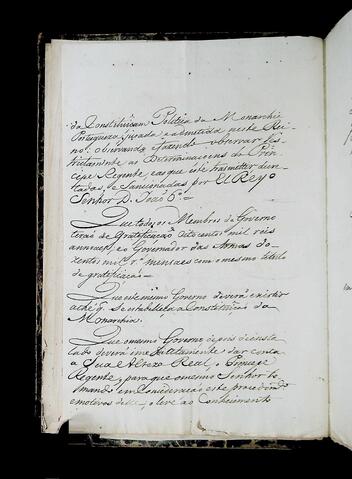 da Constituicam Politica da Monarchia
Portugueza jurada e adoptada neste Rei-
no: observando e fazendo observar res-
trictamente as Determinaçoens do Prin-
cipe Regente, eas que este trasmittir
tadas e Sancionadas por El Rey o
Senhor D. João 6º
Que todos os Membros do Governo
terão de Gratificação oito centos mil reis
annuaes, e o Governador das Armas du-
zentos mil rs. mensaes com o mesmo titulo
de gratificação
Que este mesmo Governo deverá existir
athé q. Se estabeleça a Constituição da
Monarchia
Que o mesmo Governo depois de insta-
lado deverá immediatamente dar conta
a Sua Alteza Real, o Principe
Regente, para que o mesmo Senhor to-
mando em Consideração este procedimento
e motivos delle, o leve ao Conhecimento